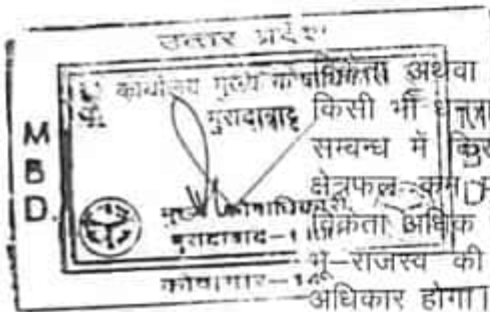 उत्तर प्रदेश
कार्यालय मुख्य कोषाधिकारी
मुरादाबाद
M
B
D.
मुख्य कोषाधिकारी
मुरादाबाद
कोषागार
अथवा
किसी भी
सम्बन्ध में
क्षेत्रफल कम
विक्रेता अधिक
भू-राजस्व की
अधिकार होगा।